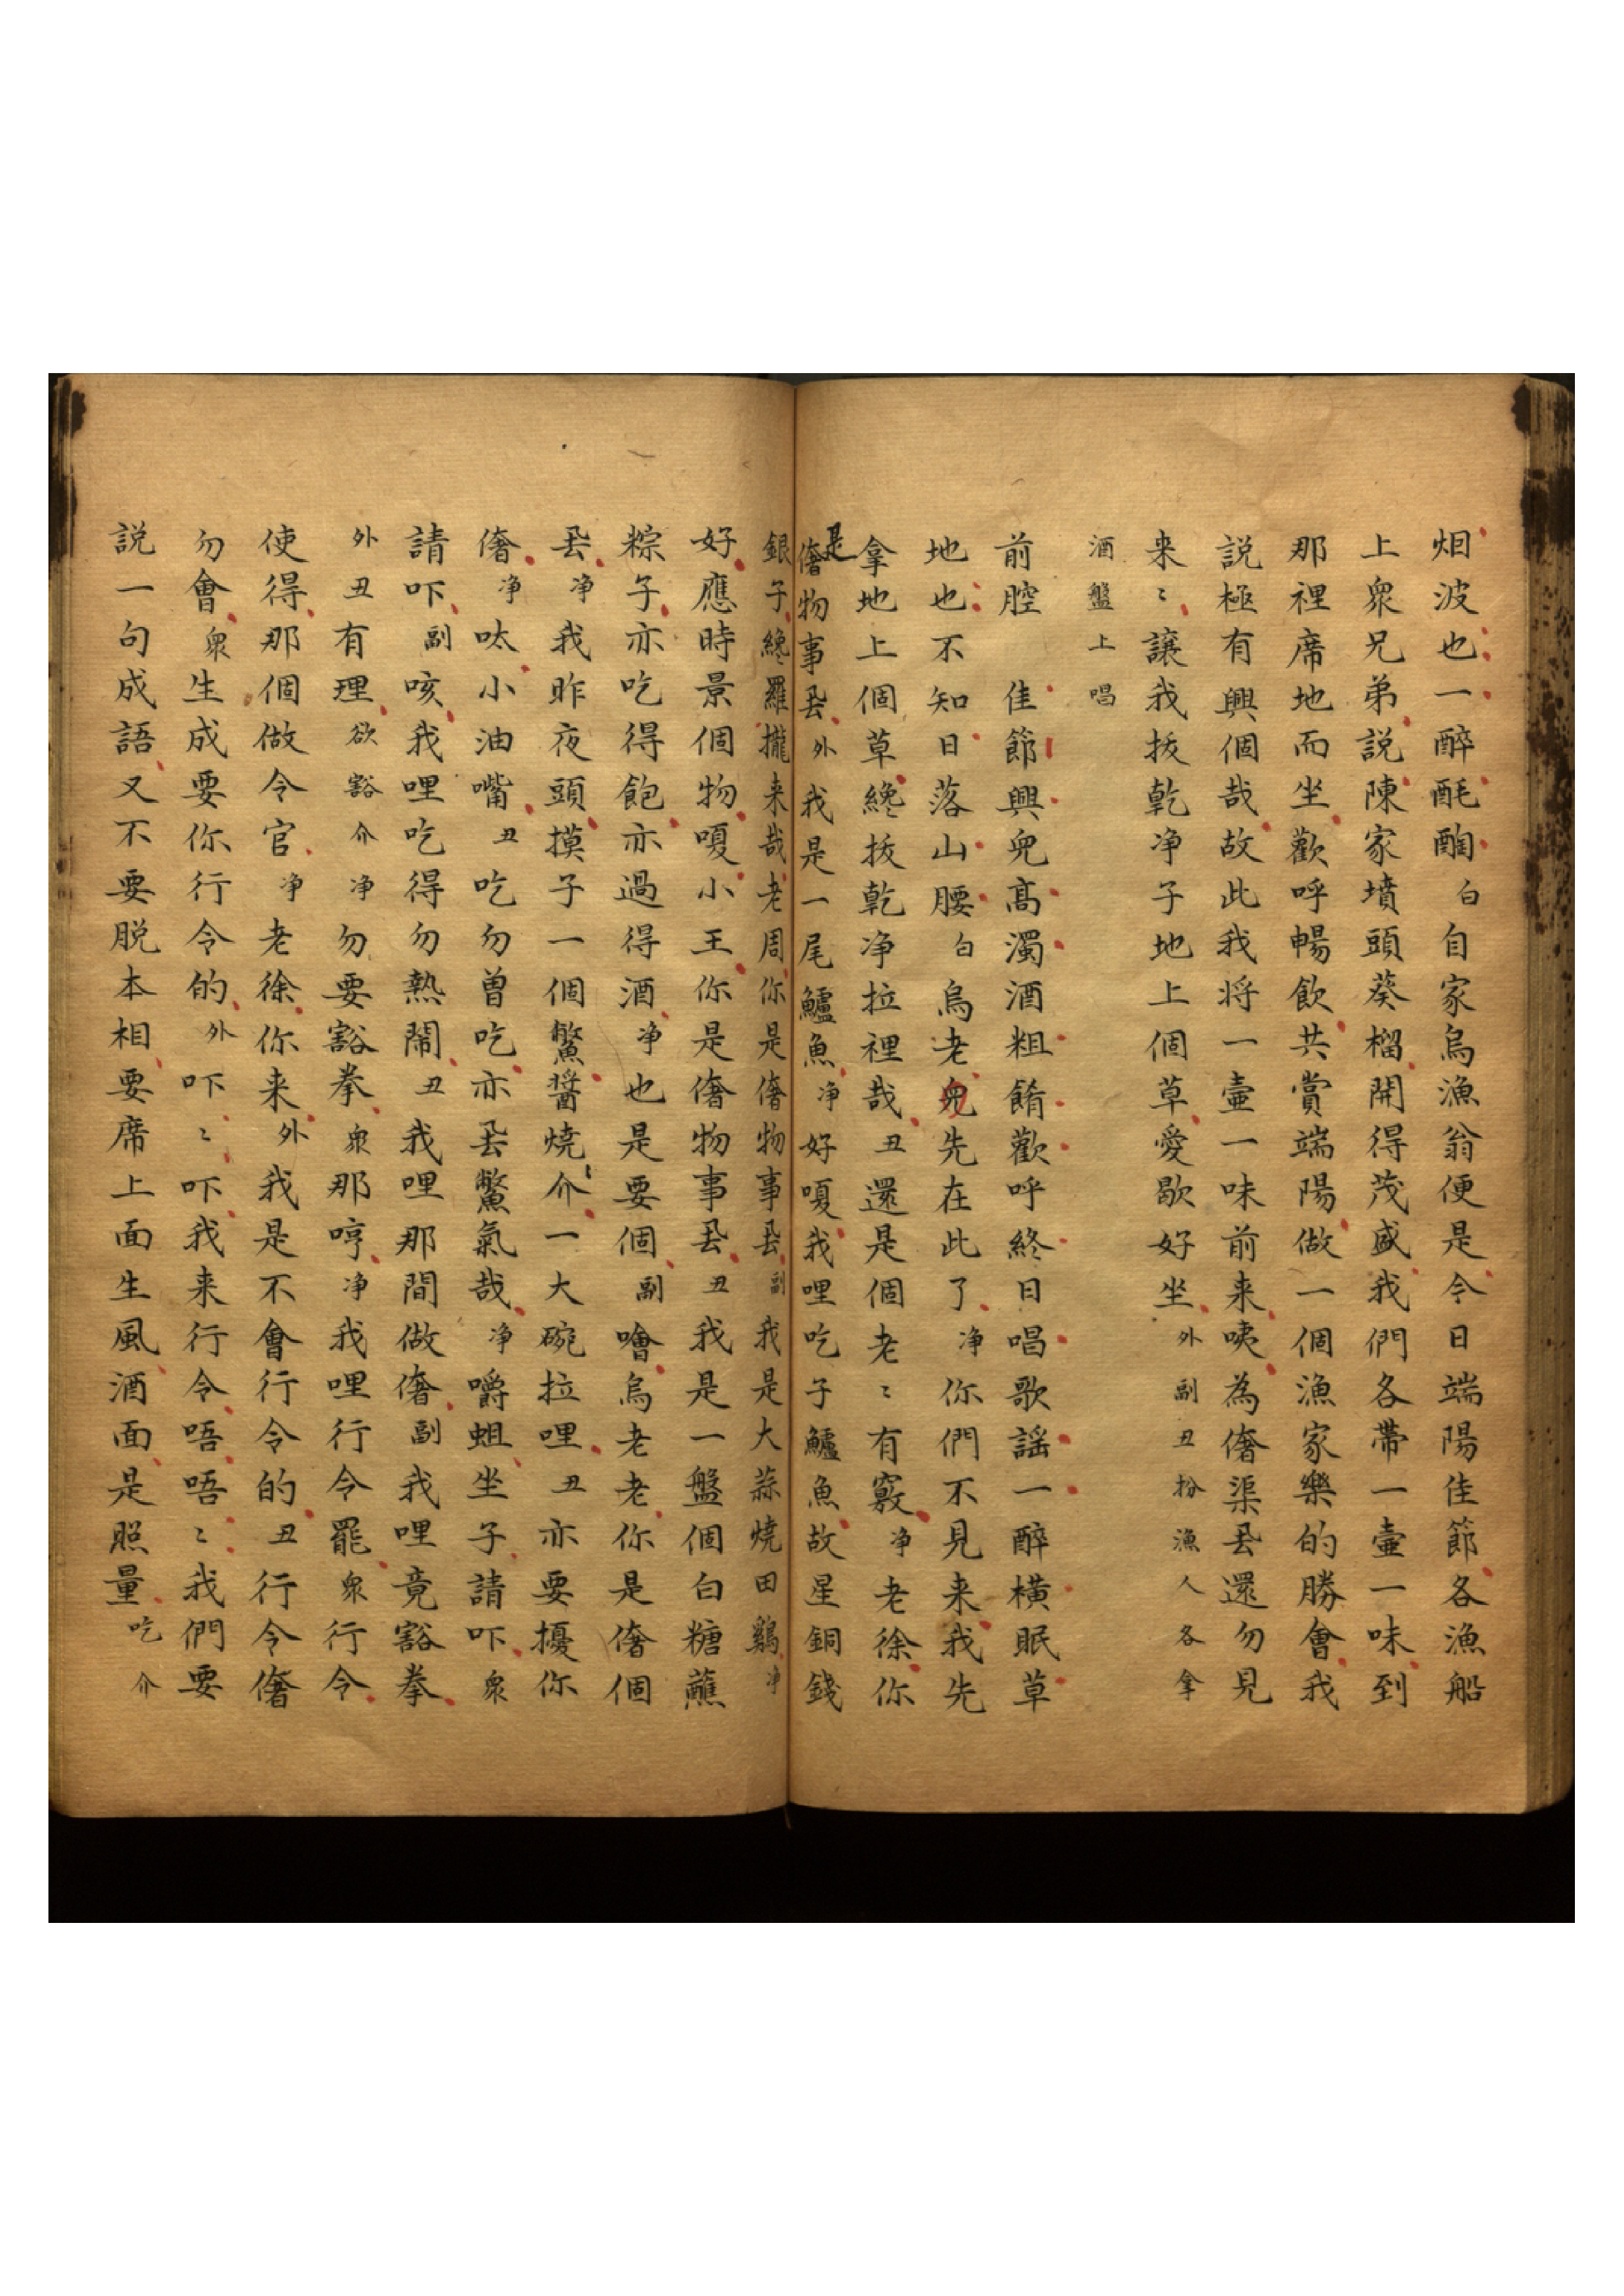 烟波也一醉酕醄白自家烏漁翁便是今日端陽佳節各漁船
上衆兄弟説陳家墳頭葵榴開得茂盛我們各帶一壷一味到
那裡席地而坐歡呼暢飲共賞端陽做一個漁家樂的勝會我
説極有興個哉故此我将一壷一味前来咦為偺渠厾還勿見
来〻讓我拔乾净子地上個草愛歇好坐外副丑扮漁人各拿
酒盤上唱
前腔　佳節興兒髙濁酒粗餚歡呼終日唱歌謡一醉横眠草
地也不知日落山腰白烏老兒先在此了净你們不見来我先
拿地上個草纔拔乾净拉裡哉丑還是個老〻有竅净老徐你
是偺物事厾外我是一尾鱸魚净好嗄我哩吃子鱸魚故星銅錢
銀子纔羅攏来哉老周你是偺物事厾副我是大蒜燒田鷄净
好應時景個物嗄小王你是偺物事厾丑我是一盤個白糖蘸
粽子亦吃得飽亦過得酒净也是要個副噲烏老老你是偺個
厾净我昨夜頭摸子一個鱉醬燒介一大碗拉哩丑亦要擾你
偺净呔小油嘴丑吃勿曽吃亦厾鱉氣哉净嚼蛆坐子請吓衆
請吓副咳我哩吃得勿熱鬧丑我哩那間做偺副我哩竟豁拳
外丑有理欲豁介净勿要豁拳衆那哼净我哩行令罷衆行令
使得那個做令官净老徐你来外我是不會行令的丑行令偺
勿會衆生成要你行令的外吓〻吓我来行令唔唔〻我們要
説一句成語又不要脱本相要席上面生風酒面是照量吃介